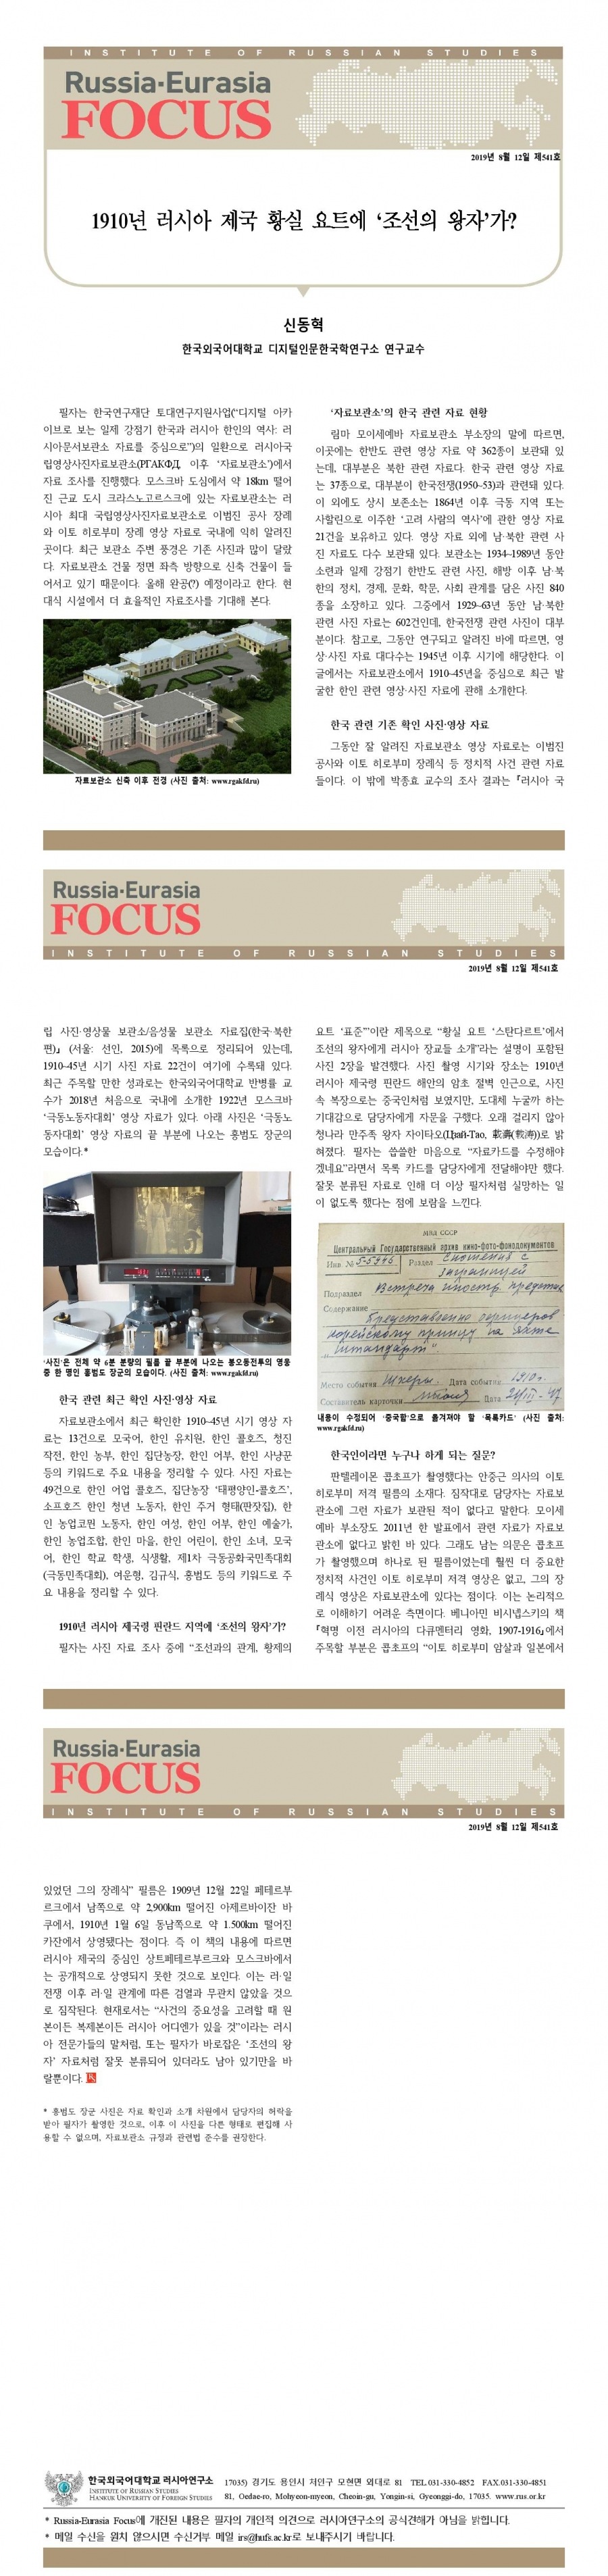 INSTITUTE OF RUSSIAN STUDIES
Russia·Eurasia
FOCUS
2019년 8월 12일 제541호
1910년 러시아 제국 황실 요트에 ‘조선의 왕자’가?
신동혁
한국외국어대학교 디지털인문한국학연구소 연구교수
필자는 한국연구재단 토대연구지원사업(“디지털 아카
이브로 보는 일제 강점기 한국과 러시아 한인의 역사: 러
시아문서보관소 자료를 중심으로”)의 일환으로 러시아국
립영상사진자료보관소(РГАКФД, 이후 ‘자료보관소’)에서
자료 조사를 진행했다. 모스크바 도심에서 약 18km 떨어
진 근교 도시 크라스노고르스크에 있는 자료보관소는 러
시아 최대 국립영상사진자료보관소로 이범진 공사 장례
와 이토 히로부미 장례 영상 자료로 국내에 익히 알려진
곳이다. 최근 보관소 주변 풍경은 기존 사진과 많이 달랐
다. 자료보관소 건물 정면 좌측 방향으로 신축 건물이 들
어서고 있기 때문이다. 올해 완공(?) 예정이라고 한다. 현
대식 시설에서 더 효율적인 자료조사를 기대해 본다.
자료보관소 신축 이후 전경 (사진 출처: www.rgakfd.ru)
‘자료보관소’의 한국 관련 자료 현황
림마 모이세예바 자료보관소 부소장의 말에 따르면,
이곳에는 한반도 관련 영상 자료 약 362종이 보관돼 있
는데, 대부분은 북한 관련 자료다. 한국 관련 영상 자료
는 37종으로, 대부분이 한국전쟁(1950~53)과 관련돼 있다.
이 외에도 상시 보존소는 1864년 이후 극동 지역 또는
사할린으로 이주한 ‘고려 사람의 역사’에 관한 영상 자료
21건을 보유하고 있다. 영상 자료 외에 남·북한 관련 사
진 자료도 다수 보관돼 있다. 보관소는 1934~1989년 동안
소련과 일제 강점기 한반도 관련 사진, 해방 이후 남·북
한의 정치, 경제, 문화, 학문, 사회 관계를 담은 사진 840
종을 소장하고 있다. 그중에서 1929~63년 동안 남·북한
관련 사진 자료는 602건인데, 한국전쟁 관련 사진이 대부
분이다. 참고로, 그동안 연구되고 알려진 바에 따르면, 영
상·사진 자료 대다수는 1945년 이후 시기에 해당한다. 이
글에서는 자료보관소에서 1910~45년을 중심으로 최근 발
굴한 한인 관련 영상·사진 자료에 관해 소개한다.
한국 관련 기존 확인 사진·영상 자료
그동안 잘 알려진 자료보관소 영상 자료로는 이범진
공사와 이토 히로부미 장례식 등 정치적 사건 관련 자료
들이다. 이 밖에 박종효 교수의 조사 결과는 『러시아 국
Russia·Eurasia
FOCUS
INSTITUTE OF RUSSIAN STUDIES
2019년 8월 12일 제541호
립 사진·영상물 보관소/음성물 보관소 자료집(한국·북한
편)』 (서울: 선인, 2015)에 목록으로 정리되어 있는데,
1910~45년 시기 사진 자료 22건이 여기에 수록돼 있다.
최근 주목할 만한 성과로는 한국외국어대학교 반병률 교
수가 2018년 처음으로 국내에 소개한 1922년 모스크바
‘극동노동자대회’ 영상 자료가 있다. 아래 사진은 ‘극동노
동자대회’ 영상 자료의 끝 부분에 나오는 홍범도 장군의
모습이다.*
‘사진’은 전체 약 6분 분량의 필름 끝 부분에 나오는 봉오동전투의 영웅
중 한 명인 홍범도 장군의 모습이다. (사진 출처: www.rgakfd.ru)
한국 관련 최근 확인 사진·영상 자료
자료보관소에서 최근 확인한 1910~45년 시기 영상 자
료는 13건으로 모국어, 한인 유치원, 한인 콜호즈, 청진
작전, 한인 농부, 한인 집단농장, 한인 어부, 한인 사냥꾼
등의 키워드로 주요 내용을 정리할 수 있다. 사진 자료는
49건으로 한인 어업 콜호즈, 집단농장 ‘태평양인-콜호즈’,
소프호즈 한인 청년 노동자, 한인 주거 형태(판잣집), 한
인 농업코뮌 노동자, 한인 여성, 한인 어부, 한인 예술가,
한인 농업조합, 한인 마을, 한인 어린이, 한인 소녀, 모국
어, 한인 학교 학생, 식생활, 제1차 극동공화국민족대회
(극동민족대회), 여운형, 김규식, 홍범도 등의 키워드로 주
요 내용을 정리할 수 있다.
1910년 러시아 제국령 핀란드 지역에 ‘조선의 왕자’가?
필자는 사진 자료 조사 중에 “조선과의 관계, 황제의
요트 ‘표준’”이란 제목으로 “황실 요트 ‘스탄다르트’에서
조선의 왕자에게 러시아 장교들 소개”라는 설명이 포함된
사진 2장을 발견했다. 사진 촬영 시기와 장소는 1910년
러시아 제국령 핀란드 해안의 암초 절벽 인근으로, 사진
속 복장으로는 중국인처럼 보였지만, 도대체 누굴까 하는
기대감으로 담당자에게 자문을 구했다. 오래 걸리지 않아
청나라 만주족 왕자 자이타오(Цзай-Тао, 載濤(载涛))로 밝
혀졌다. 필자는 씁쓸한 마음으로 “자료카드를 수정해야
겠네요”라면서 목록 카드를 담당자에게 전달해야만 했다.
잘못 분류된 자료로 인해 더 이상 필자처럼 실망하는 일
이 없도록 했다는 점에 보람을 느낀다.
МВД СССР
Центральный Государственный архив кино-фото-фонодокументов
Инв. № 5-5946 Раздел Сношения с
заграницей
Подраздел Встреча иностр. представ
Содержание Представление офицеров
корейскому принцу на яхте
„Штандарт“
Место события Шхеры. Дата события 1910г.
Составитель карточки
내용이 수정되어 ‘중국함’으로 옮겨져야 할 ‘목록카드’ (사진 출처:
www.rgakfd.ru)
한국인이라면 누구나 하게 되는 질문?
판텔레이몬 콥초프가 촬영했다는 안중근 의사의 이토
히로부미 저격 필름의 소재다. 짐작대로 담당자는 자료보
관소에 그런 자료가 보관된 적이 없다고 말한다. 모이세
예바 부소장도 2011년 한 발표에서 관련 자료가 자료보
관소에 없다고 밝힌 바 있다. 그래도 남는 의문은 콥초프
가 촬영했으며 하나로 된 필름이었는데 훨씬 더 중요한
정치적 사건인 이토 히로부미 저격 영상은 없고, 그의 장
례식 영상은 자료보관소에 있다는 점이다. 이는 논리적으
로 이해하기 어려운 측면이다. 베니아민 비시넵스키의 책
『혁명 이전 러시아의 다큐멘터리 영화, 1907-1916』에서
주목할 부분은 콥초프의 “이토 히로부미 암살과 일본에서
Russia·Eurasia
FOCUS
INSTITUTE OF RUSSIAN STUDIES
2019년 8월 12일 제541호
있었던 그의 장례식” 필름은 1909년 12월 22일 페테르부
르크에서 남쪽으로 약 2,900km 떨어진 아제르바이잔 바
쿠에서, 1910년 1월 6일 동남쪽으로 약 1.500km 떨어진
카잔에서 상영됐다는 점이다. 즉 이 책의 내용에 따르면
러시아 제국의 중심인 상트페테르부르크와 모스크바에서
는 공개적으로 상영되지 못한 것으로 보인다. 이는 러·일
전쟁 이후 러·일 관계에 따른 검열과 무관치 않았을 것으
로 짐작된다. 현재로서는 “사건의 중요성을 고려할 때 원
본이든 복제본이든 러시아 어디엔가 있을 것”이라는 러시
아 전문가들의 말처럼, 또는 필자가 바로잡은 ‘조선의 왕
자’ 자료처럼 잘못 분류되어 있더라도 남아 있기만을 바
랄뿐이다.
* 홍범도 장군 사진은 자료 확인과 소개 차원에서 담당자의 허락을
받아 필자가 촬영한 것으로, 이후 이 사진을 다른 형태로 편집해 사
용할 수 없으며, 자료보관소 규정과 관련법 준수를 권장한다.
한국외국어대학교 러시아연구소
INSTITUTE OF RUSSIAN STUDIES
HANKUK UNIVERSITY OF FOREIGN STUDIES
17035) 경기도 용인시 처인구 모현면 외대로 81 TEL.031-330-4852 FAX.031-330-4851
81, Oedae-ro, Mohyeon-myeon, Cheoin-gu, Yongin-si, Gyeonggi-do, 17035. www.rus.or.kr
* Russia-Eurasia Focus에 개진된 내용은 필자의 개인적 의견으로 러시아연구소의 공식견해가 아님을 밝힙니다.
* 메일 수신을 원치 않으시면 수신거부 메일 irs@hufs.ac.kr로 보내주시기 바랍니다.